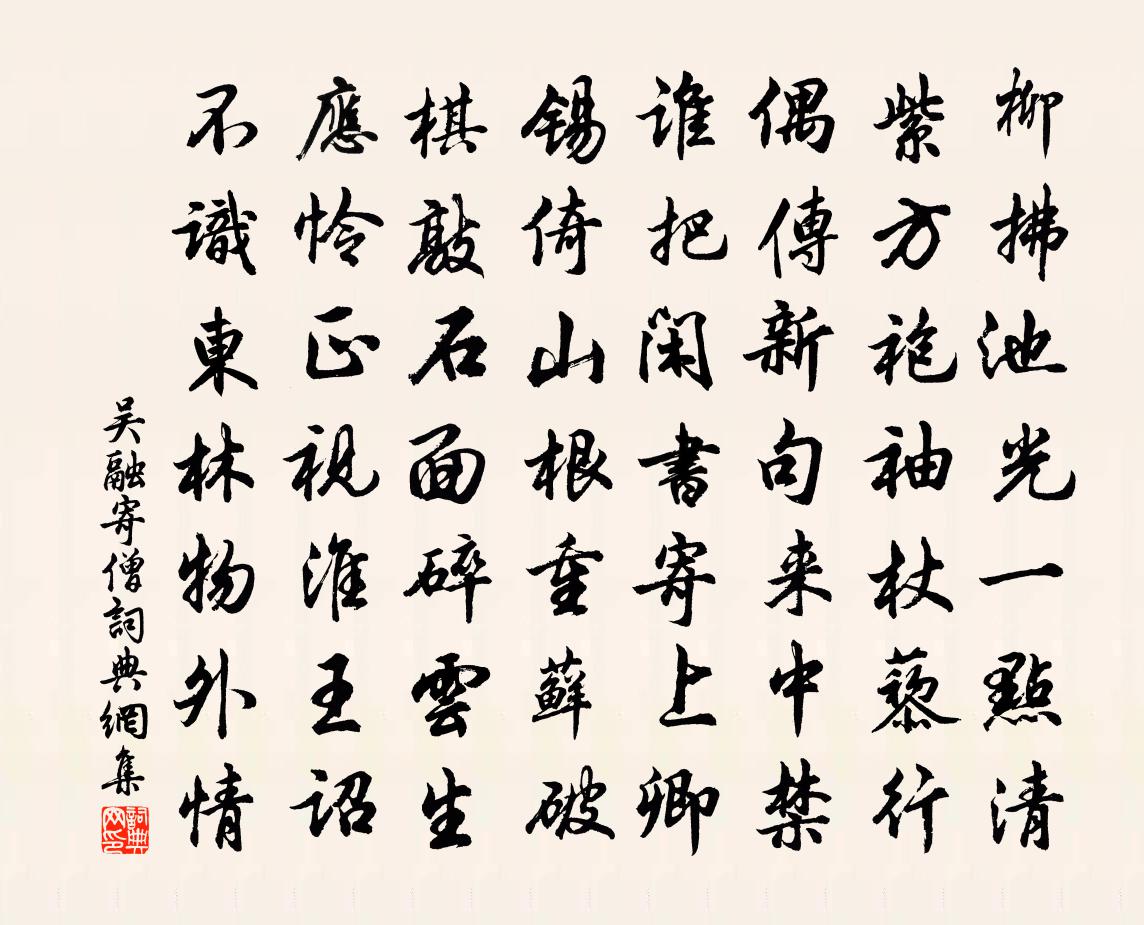 柳拂池光一點清
紫方袍袖杖藜行
偶傳新句来中禁
谁把閑書寄上卿
錫倚山根重蘚破
棋敲石面碎雲生
應怜正視淮王詔
不識東林物外情
吴融寄僧詞典網集
詞典网印